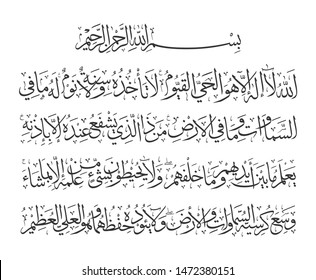 بِسْمِ اللَّهِ الرَّحْمَنِ الرَّحِيمِ
اللَّهُ لَا إِلَهَ إِلَّا هُوَ الْحَيُّ الْقَيُّومُ لَا تَأْخُذُهُ سِنَةٌ وَلَا نَوْمٌ لَهُ مَا فِي
السَّمَاوَاتِ وَمَا فِي الْأَرْضِ مَنْ ذَا الَّذِي يَشْفَعُ عِنْدَهُ إِلَّا بِإِذْنِهِ
يَعْلَمُ مَا بَيْنَ أَيْدِيهِمْ وَمَا خَلْفَهُمْ وَلَا يُحِيطُونَ بِشَيْءٍ مِنْ عِلْمِهِ إِلَّا بِمَا شَاءَ
وَسِعَ كُرْسِيُّهُ السَّمَاوَاتِ وَالْأَرْضَ وَلَا يَئُودُهُ حِفْظُهُمَا وَهُوَ الْعَلِيُّ الْعَظِيمُ
shutterstock.com · 1472380151